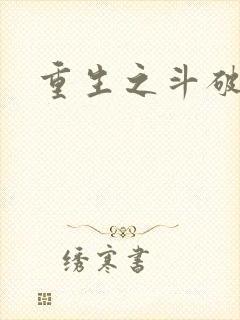 重生之斗破
绣寒书